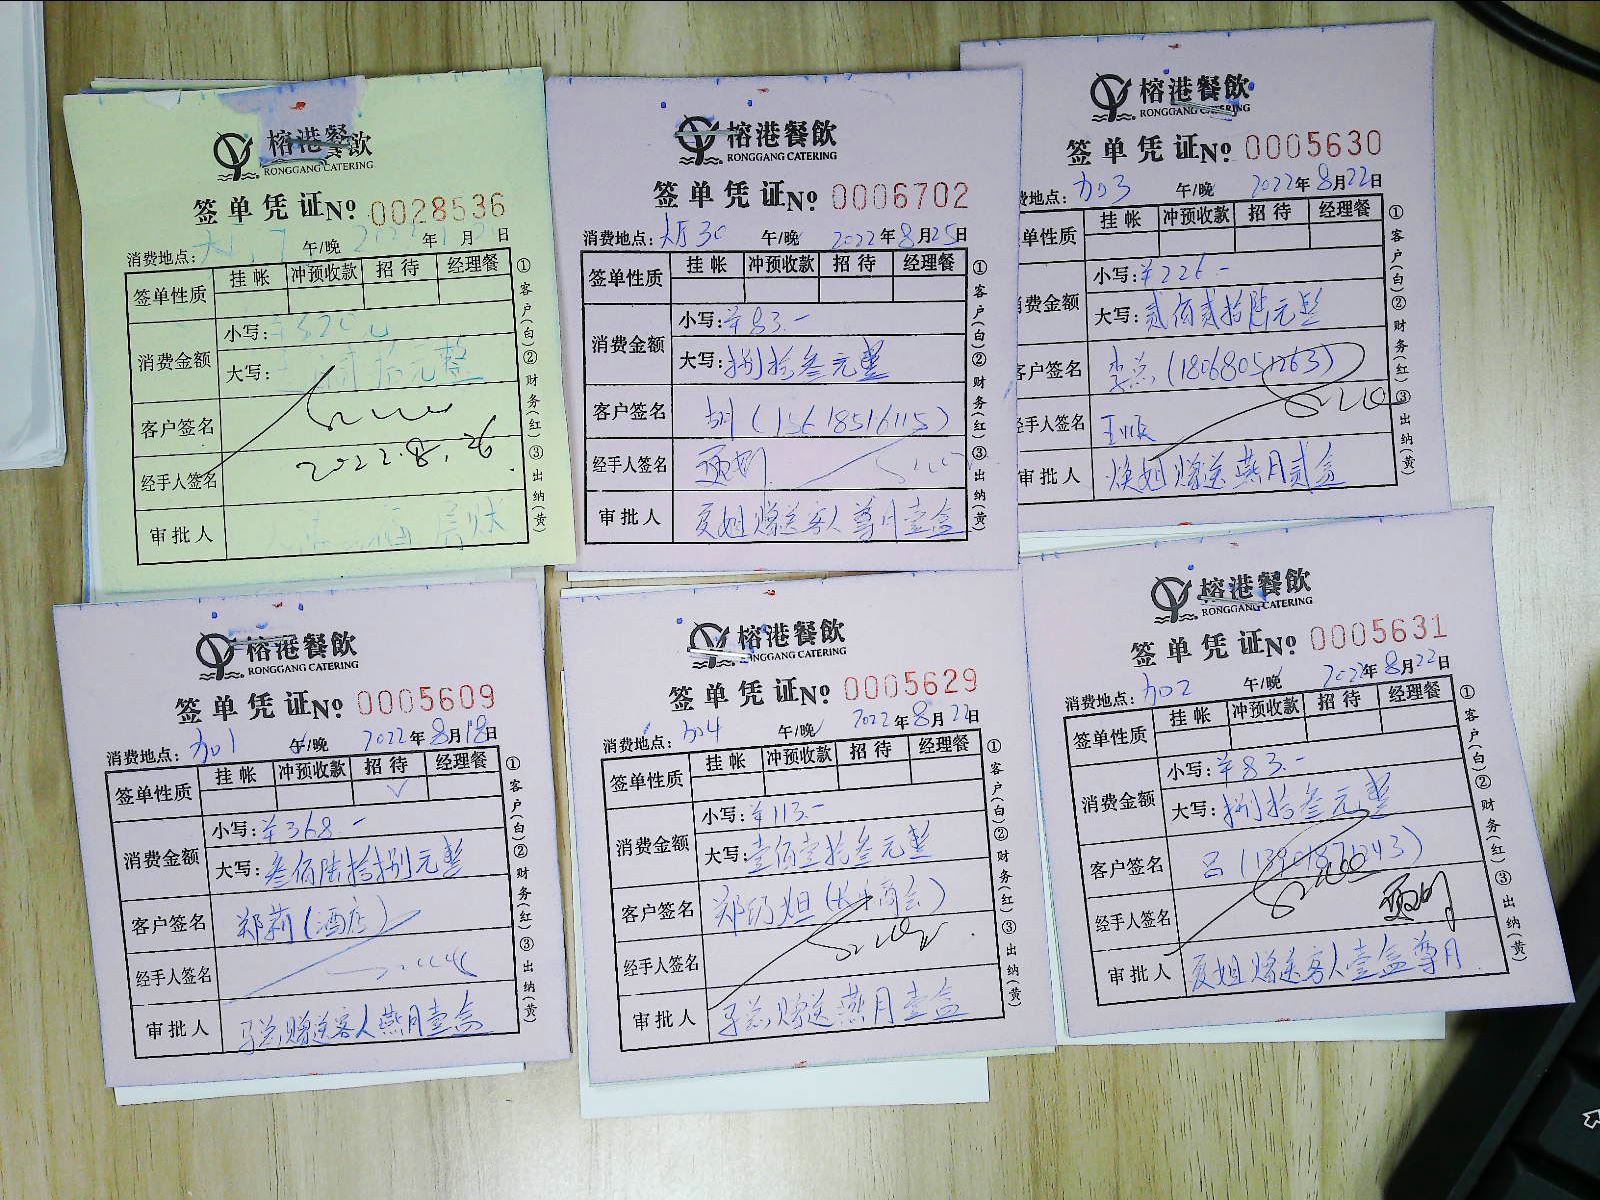 榕港餐飲
RONGGANG CATERING
签单凭证No. 0028536
消费地点: 午/晚 年 月 日
签单性质 挂帐 冲预收款 招待 经理餐
消费金额 小写:
大写: 拾元整
客户签名
2022.8.26
经手人签名
审批人
①客户(白)②财务(红)③出纳(黄)
榕港餐飲
RONGGANG CATERING
签单凭证No. 0006702
消费地点: 大厅30 午/晚 2022年8月25日
签单性质 挂帐 冲预收款 招待 经理餐
消费金额 小写:¥83.-
大写:捌拾叁元整
客户签名 (15618516115)
经手人签名
审批人 夏姐赠送客人尊月壹盒
①客户(白)②财务(红)③出纳(黄)
榕港餐飲
RONGGANG CATERING
签单凭证No. 0005630
费地点: 加03 午/晚 2022年8月22日
单性质 挂帐 冲预收款 招待 经理餐
消费金额 小写:¥226.-
大写:贰佰贰拾陆元整
客户签名 李总(18068051263)
经手人签名
审批人 焕姐赠送燕月贰盒
①客户(白)②财务(红)③出纳(黄)
榕港餐飲
RONGGANG CATERING
签单凭证No. 0005609
消费地点: 加01 午/晚 2022年8月18日
签单性质 挂帐 冲预收款 招待 经理餐
✓
消费金额 小写:¥368.-
大写:叁佰陆拾捌元整
客户签名 郑莉(酒店)
经手人签名
审批人 马总赠送客人燕月壹盒
①客户(白)②财务(红)③出纳(黄)
榕港餐飲
RONGGANG CATERING
签单凭证No. 0005629
消费地点: 加04 午/晚 2022年8月22日
签单性质 挂帐 冲预收款 招待 经理餐
消费金额 小写:¥113.-
大写:壹佰壹拾叁元整
客户签名 郑
经手人签名
审批人 马总赠送燕月壹盒
①客户(白)②财务(红)③出纳(黄)
榕港餐飲
RONGGANG CATERING
签单凭证No. 0005631
消费地点: 加02 午/晚 2022年8月22日
签单性质 挂帐 冲预收款 招待 经理餐
消费金额 小写:¥83.-
大写:捌拾叁元整
客户签名 吕(13901871243)
经手人签名
审批人 夏姐赠送客人壹盒尊月
①客户(白)②财务(红)③出纳(黄)